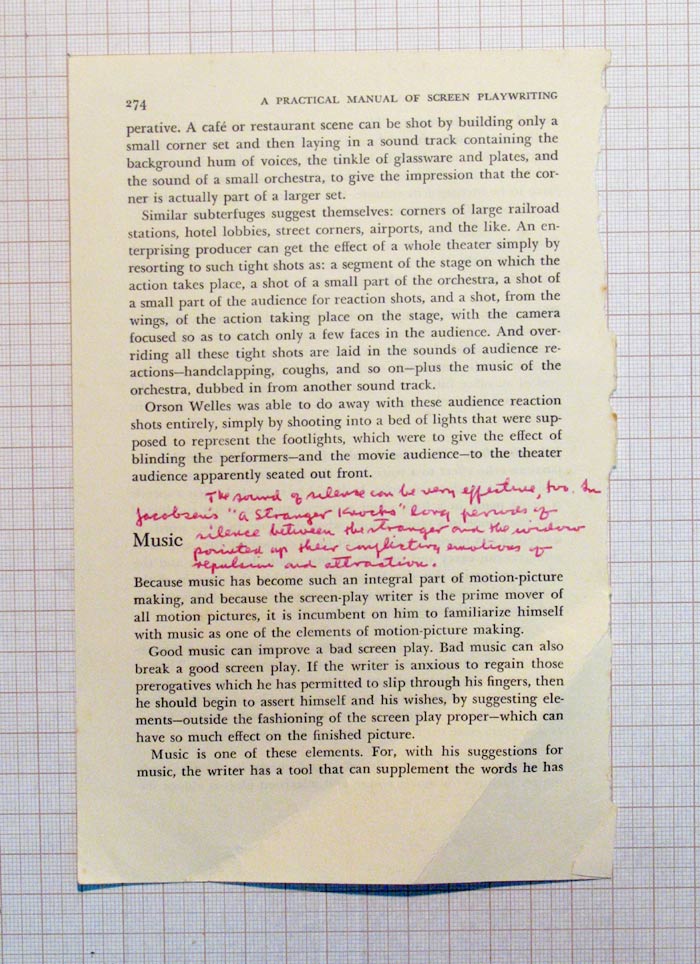 274 A PRACTICAL MANUAL OF SCREEN PLAYWRITING
perative. A café or restaurant scene can be shot by building only a
small corner set and then laying in a sound track containing the
background hum of voices, the tinkle of glassware and plates, and
the sound of a small orchestra, to give the impression that the cor-
ner is actually part of a larger set.
Similar subterfuges suggest themselves: corners of large railroad
stations, hotel lobbies, street corners, airports, and the like. An en-
terprising producer can get the effect of a whole theater simply by
resorting to such tight shots as: a segment of the stage on which the
action takes place, a shot of a small part of the orchestra, a shot of
a small part of the audience for reaction shots, and a shot, from the
wings, of the action taking place on the stage, with the camera
focused so as to catch only a few faces in the audience. And over-
riding all these tight shots are laid in the sounds of audience re-
actions—handclapping, coughs, and so on—plus the music of the
orchestra, dubbed in from another sound track.
Orson Welles was able to do away with these audience reaction
shots entirely, simply by shooting into a bed of lights that were sup-
posed to represent the footlights, which were to give the effect of
blinding the performers—and the movie audience—to the theater
audience apparently seated out front.
The sound of silence can be very effective, too. In
Jacobsen's "A Stranger Knocks" long periods of
silence between the stranger and the widow
pointed up their conflicting emotions of
repulsion and attraction.
Music
Because music has become such an integral part of motion-picture
making, and because the screen-play writer is the prime mover of
all motion pictures, it is incumbent on him to familiarize himself
with music as one of the elements of motion-picture making.
Good music can improve a bad screen play. Bad music can also
break a good screen play. If the writer is anxious to regain those
prerogatives which he has permitted to slip through his fingers, then
he should begin to assert himself and his wishes, by suggesting ele-
ments—outside the fashioning of the screen play proper—which can
have so much effect on the finished picture.
Music is one of these elements. For, with his suggestions for
music, the writer has a tool that can supplement the words he has